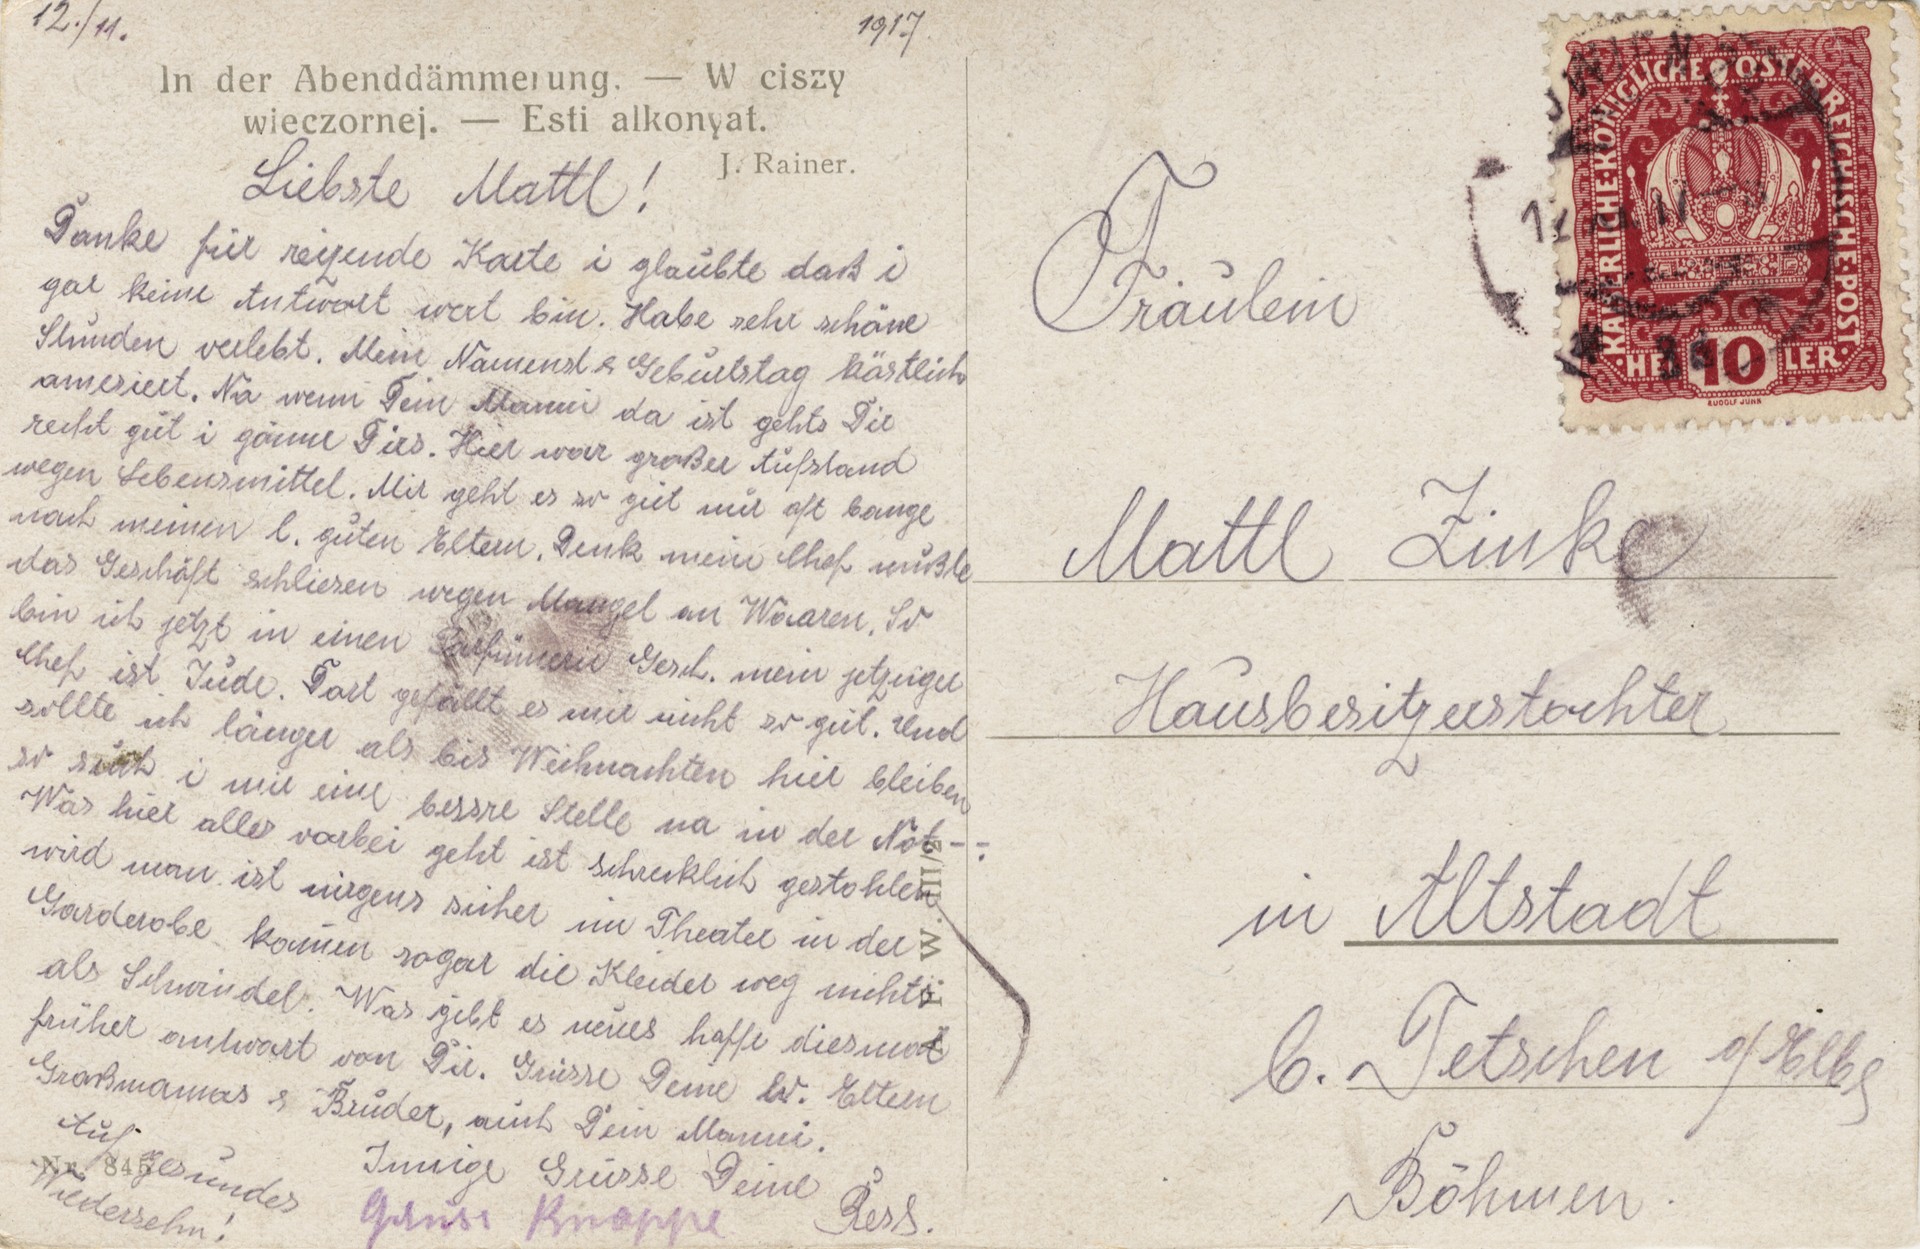 12./11. 1917
In der Abenddämmerung. — W ciszy
wieczornej. — Esti alkonyat.
J. Rainer.
Liebste Mattl!
Danke für reizende Karte i glaubte daß i
gar keine Antwort wert bin. Habe sehr schöne
Stunden verlebt. Mein Namenst & Geburtstag köstlich
amesiert. Na wenn Dein Manni da ist gehts Dir
recht gut i gönne Dirs. Hier war großer Aufstand
wegen Lebensmittel. Mir geht es so gut nur oft bange
nach meinen l. guten Eltern. Denk mein Chef mußte
das Geschäft schliesen wegen Mangel an Waaren. So
bin ich jetzt in einen Parfümerie Gesch. mein jetziger
Chef ist Jude. Dort gefällt es mir nicht so gut. Und
sollte ich länger als bis Weihnachten hier bleiben
so such i mir eine bessre Stelle na in der Not--.
Was hier alles vorbei geht ist schrecklich gestohlen
wird man ist nirgens sicher im Theater in der
Garderobe kommen sogar die Kleider weg nichts
als Schwindel. Was gibt es neues hoffe diesmal
früher antwort von Dir. Grüsse Deine lb. Eltern
Großmamas & Bruder, auch Dein Manni.
Innige Grüsse Deine
Resl.
Auf gesundes
Wiedersehn!
Nr. 845
Knappe
Fräulein
Mattl Zinke
Hausbesitzerstochter
in Altstadt
b. Tetschen a/Elbe
Böhmen.
KAISERLICHE·KÖNIGLICHE ÖSTERREICHISCHE·POST·
HELLER 10
RUDOLF JUNK